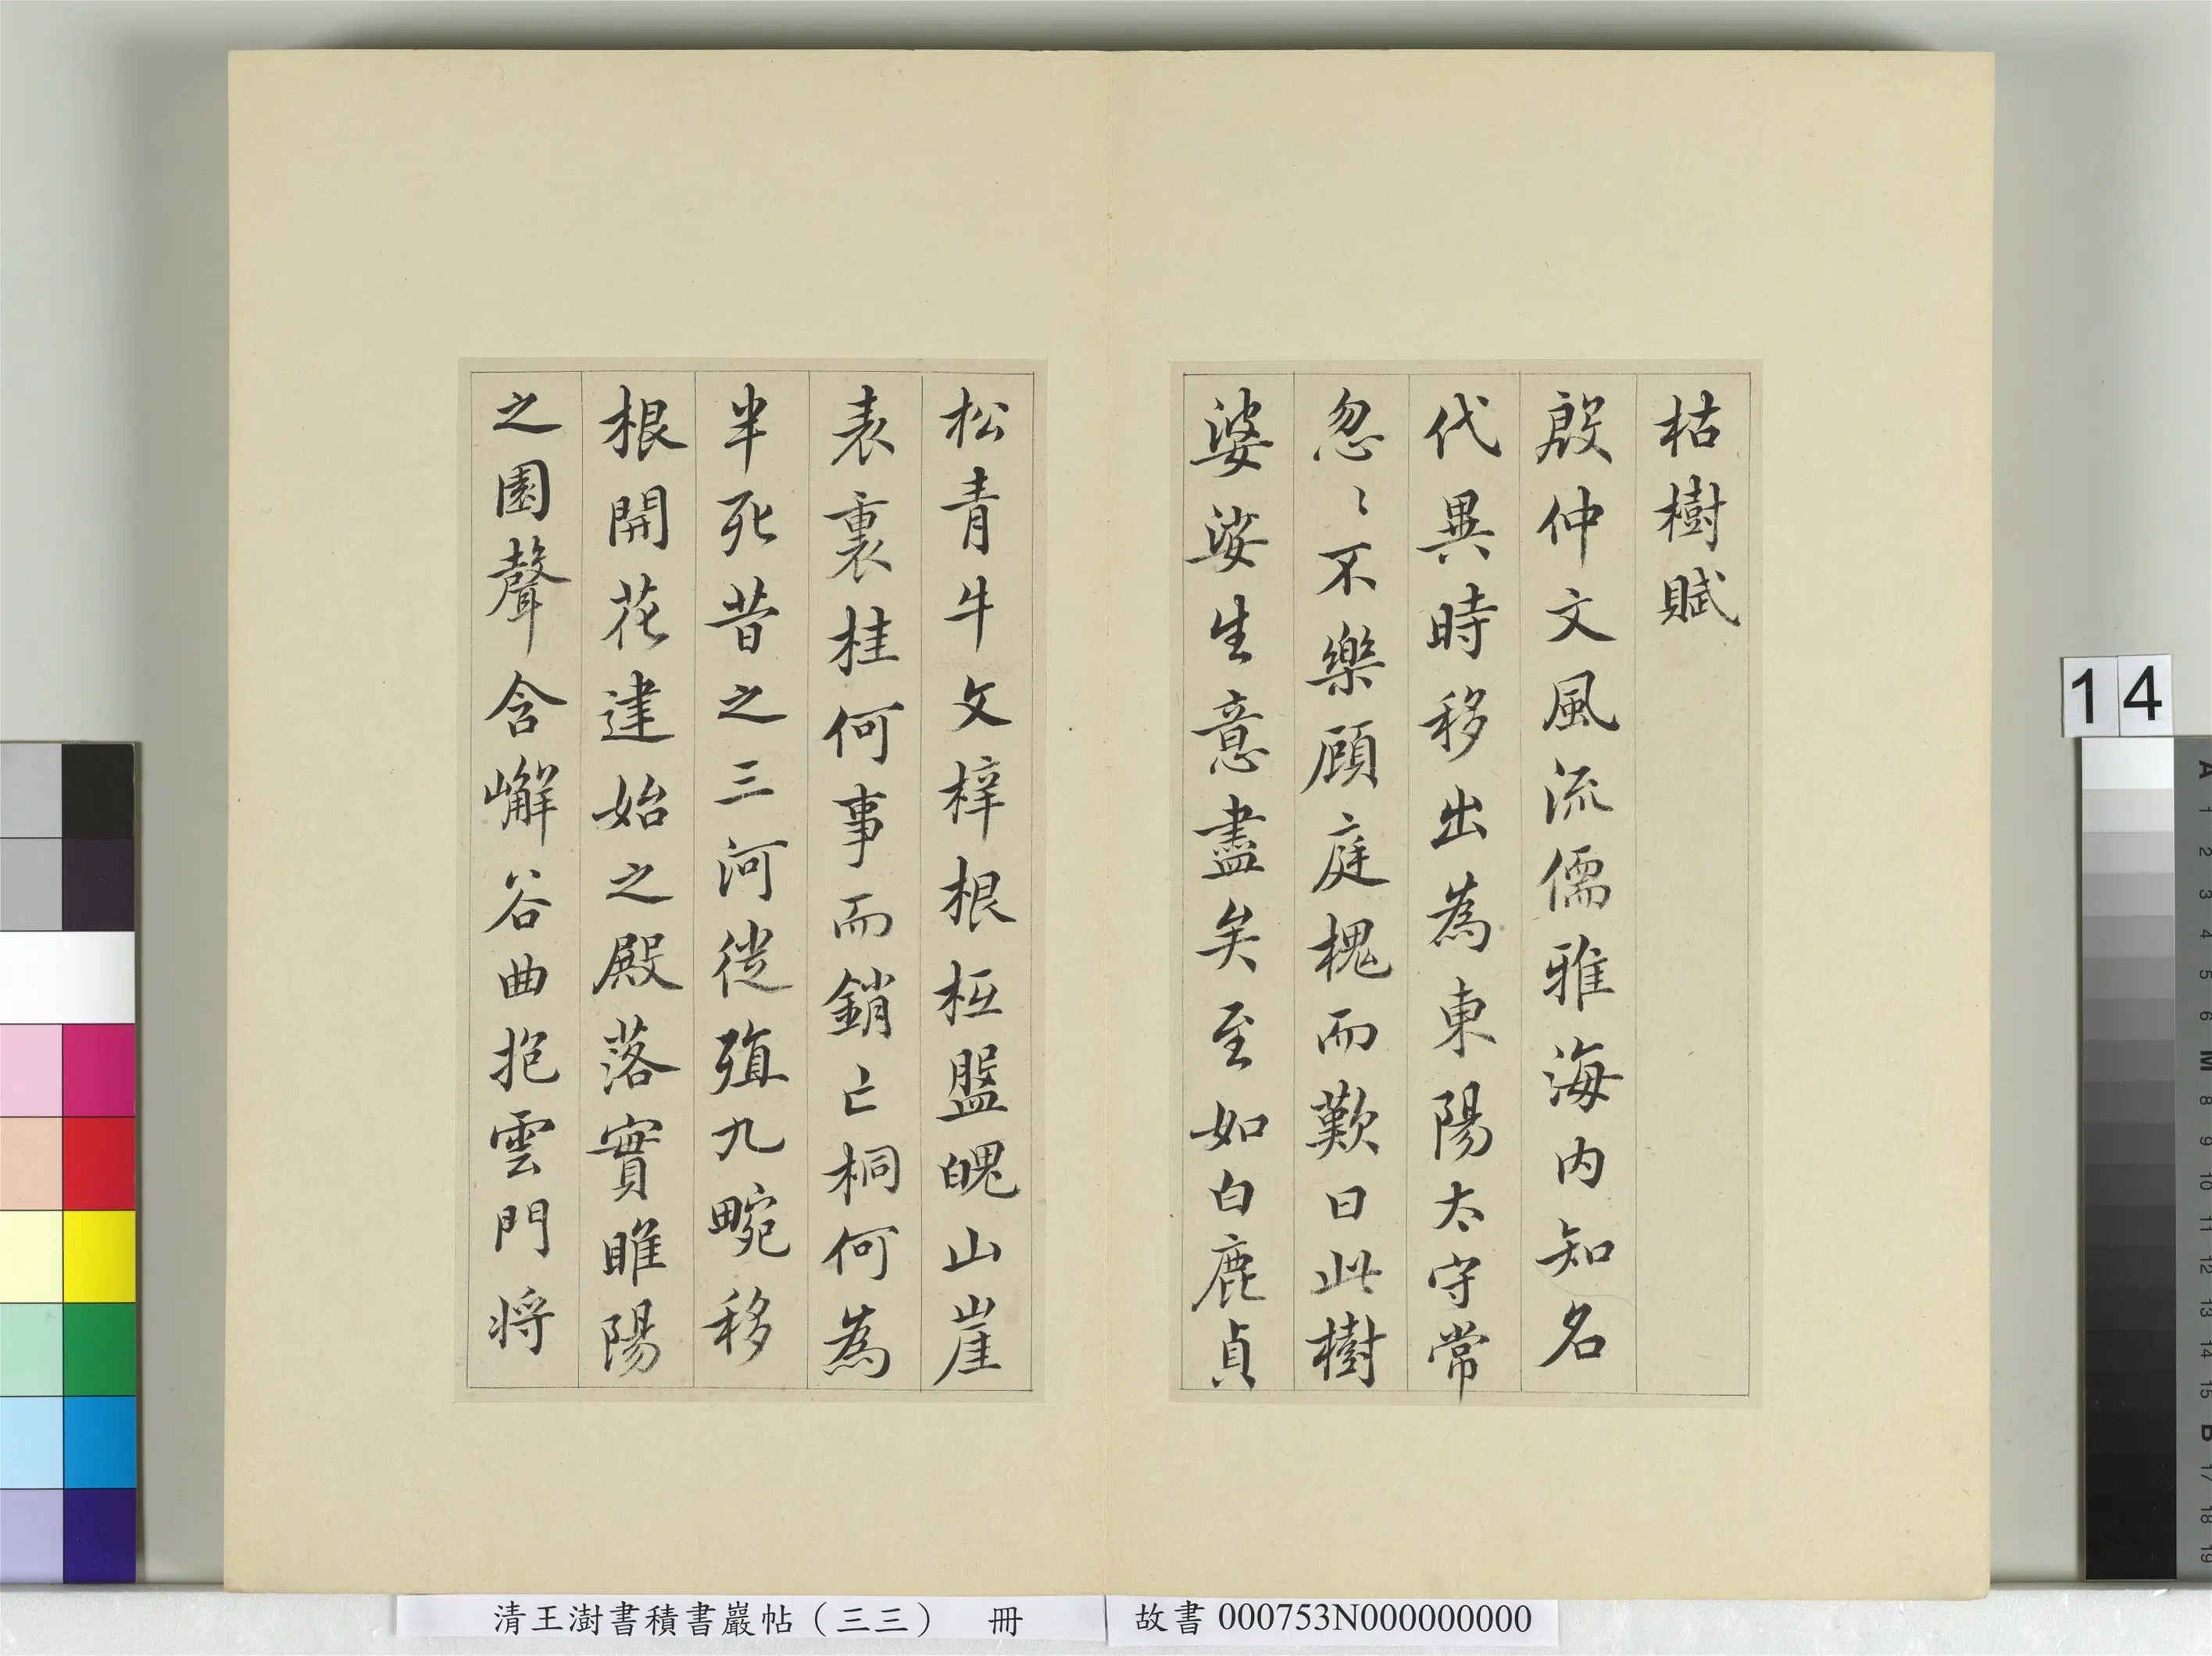 枯樹賦
殷仲文風流儒雅海内知名
代異時移出為東陽太守常
忽〻不樂顧庭槐而歎曰此樹
婆娑生意盡矣至如白鹿貞
松青牛文梓根柢盤魄山崖
表裏桂何事而銷亡桐何為
半死昔之三河徙殖九畹移
根開花建始之殿落實睢陽
之園聲含嶰谷曲抱雲門将
清王澍書積書巖帖（三三） 冊
故書000753N000000000
14
A 1 2 3 4 5 6 M 8 9 10 11 12 13 14 15 B 17 18 19